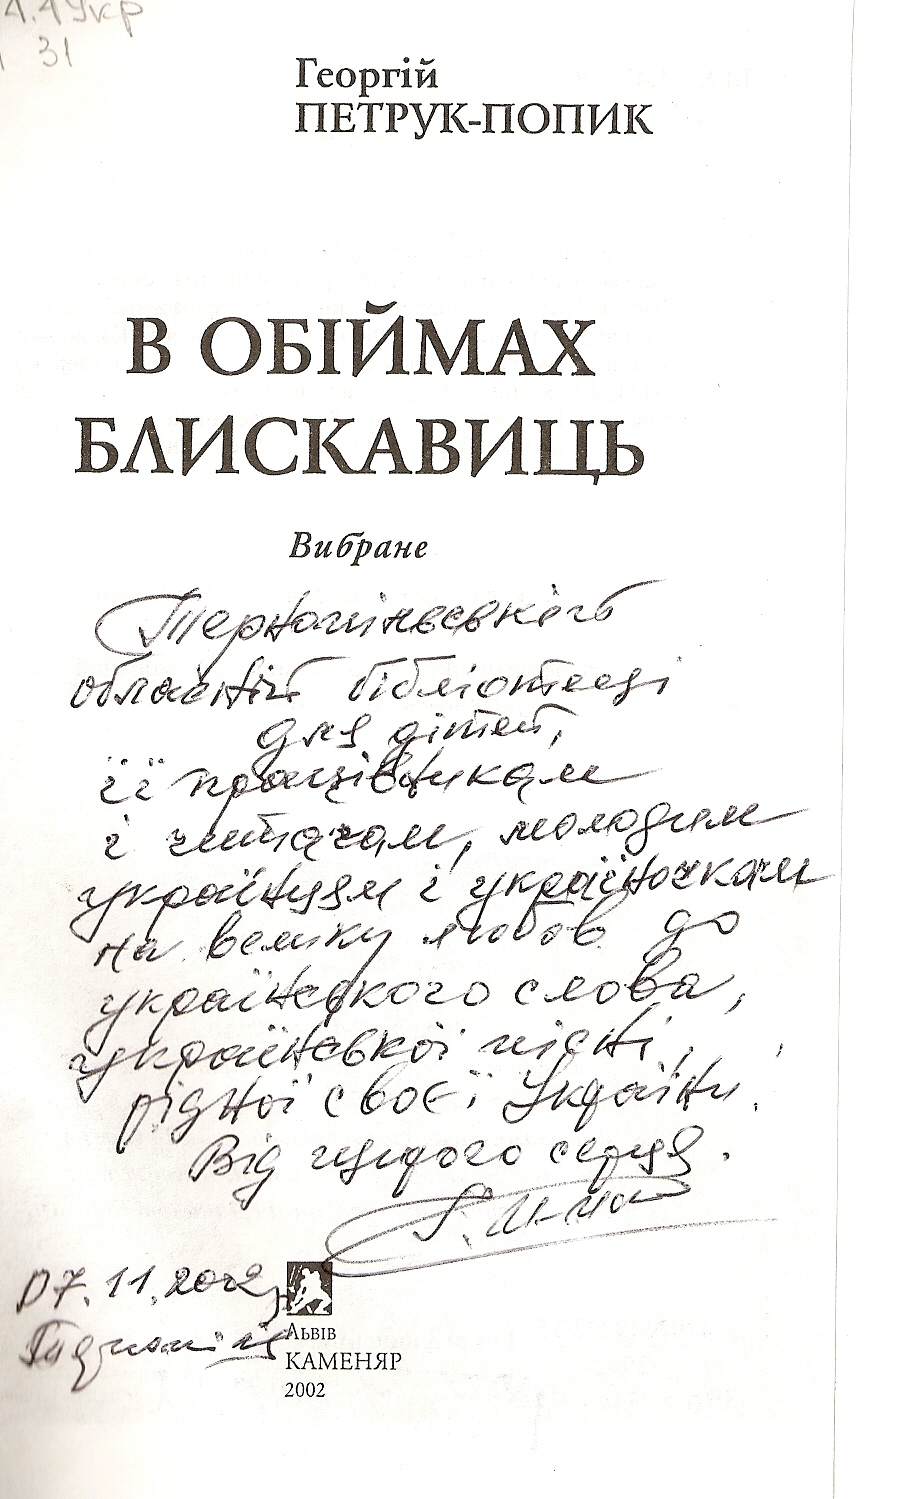 4.4Укр
31
Георгій
ПЕТРУК-ПОПИК
В ОБІЙМАХ
БЛИСКАВИЦЬ
Вибране
Тернопільській
обласній бібліотеці
для дітей,
її працівникам
і читачам, молодим
українцям і україночкам
на велику любов до
українського слова,
української пісні,
рідної своєї України.
Від щирого серця.
07.11.2002 р.
ЛЬВІВ
КАМЕНЯР
2002